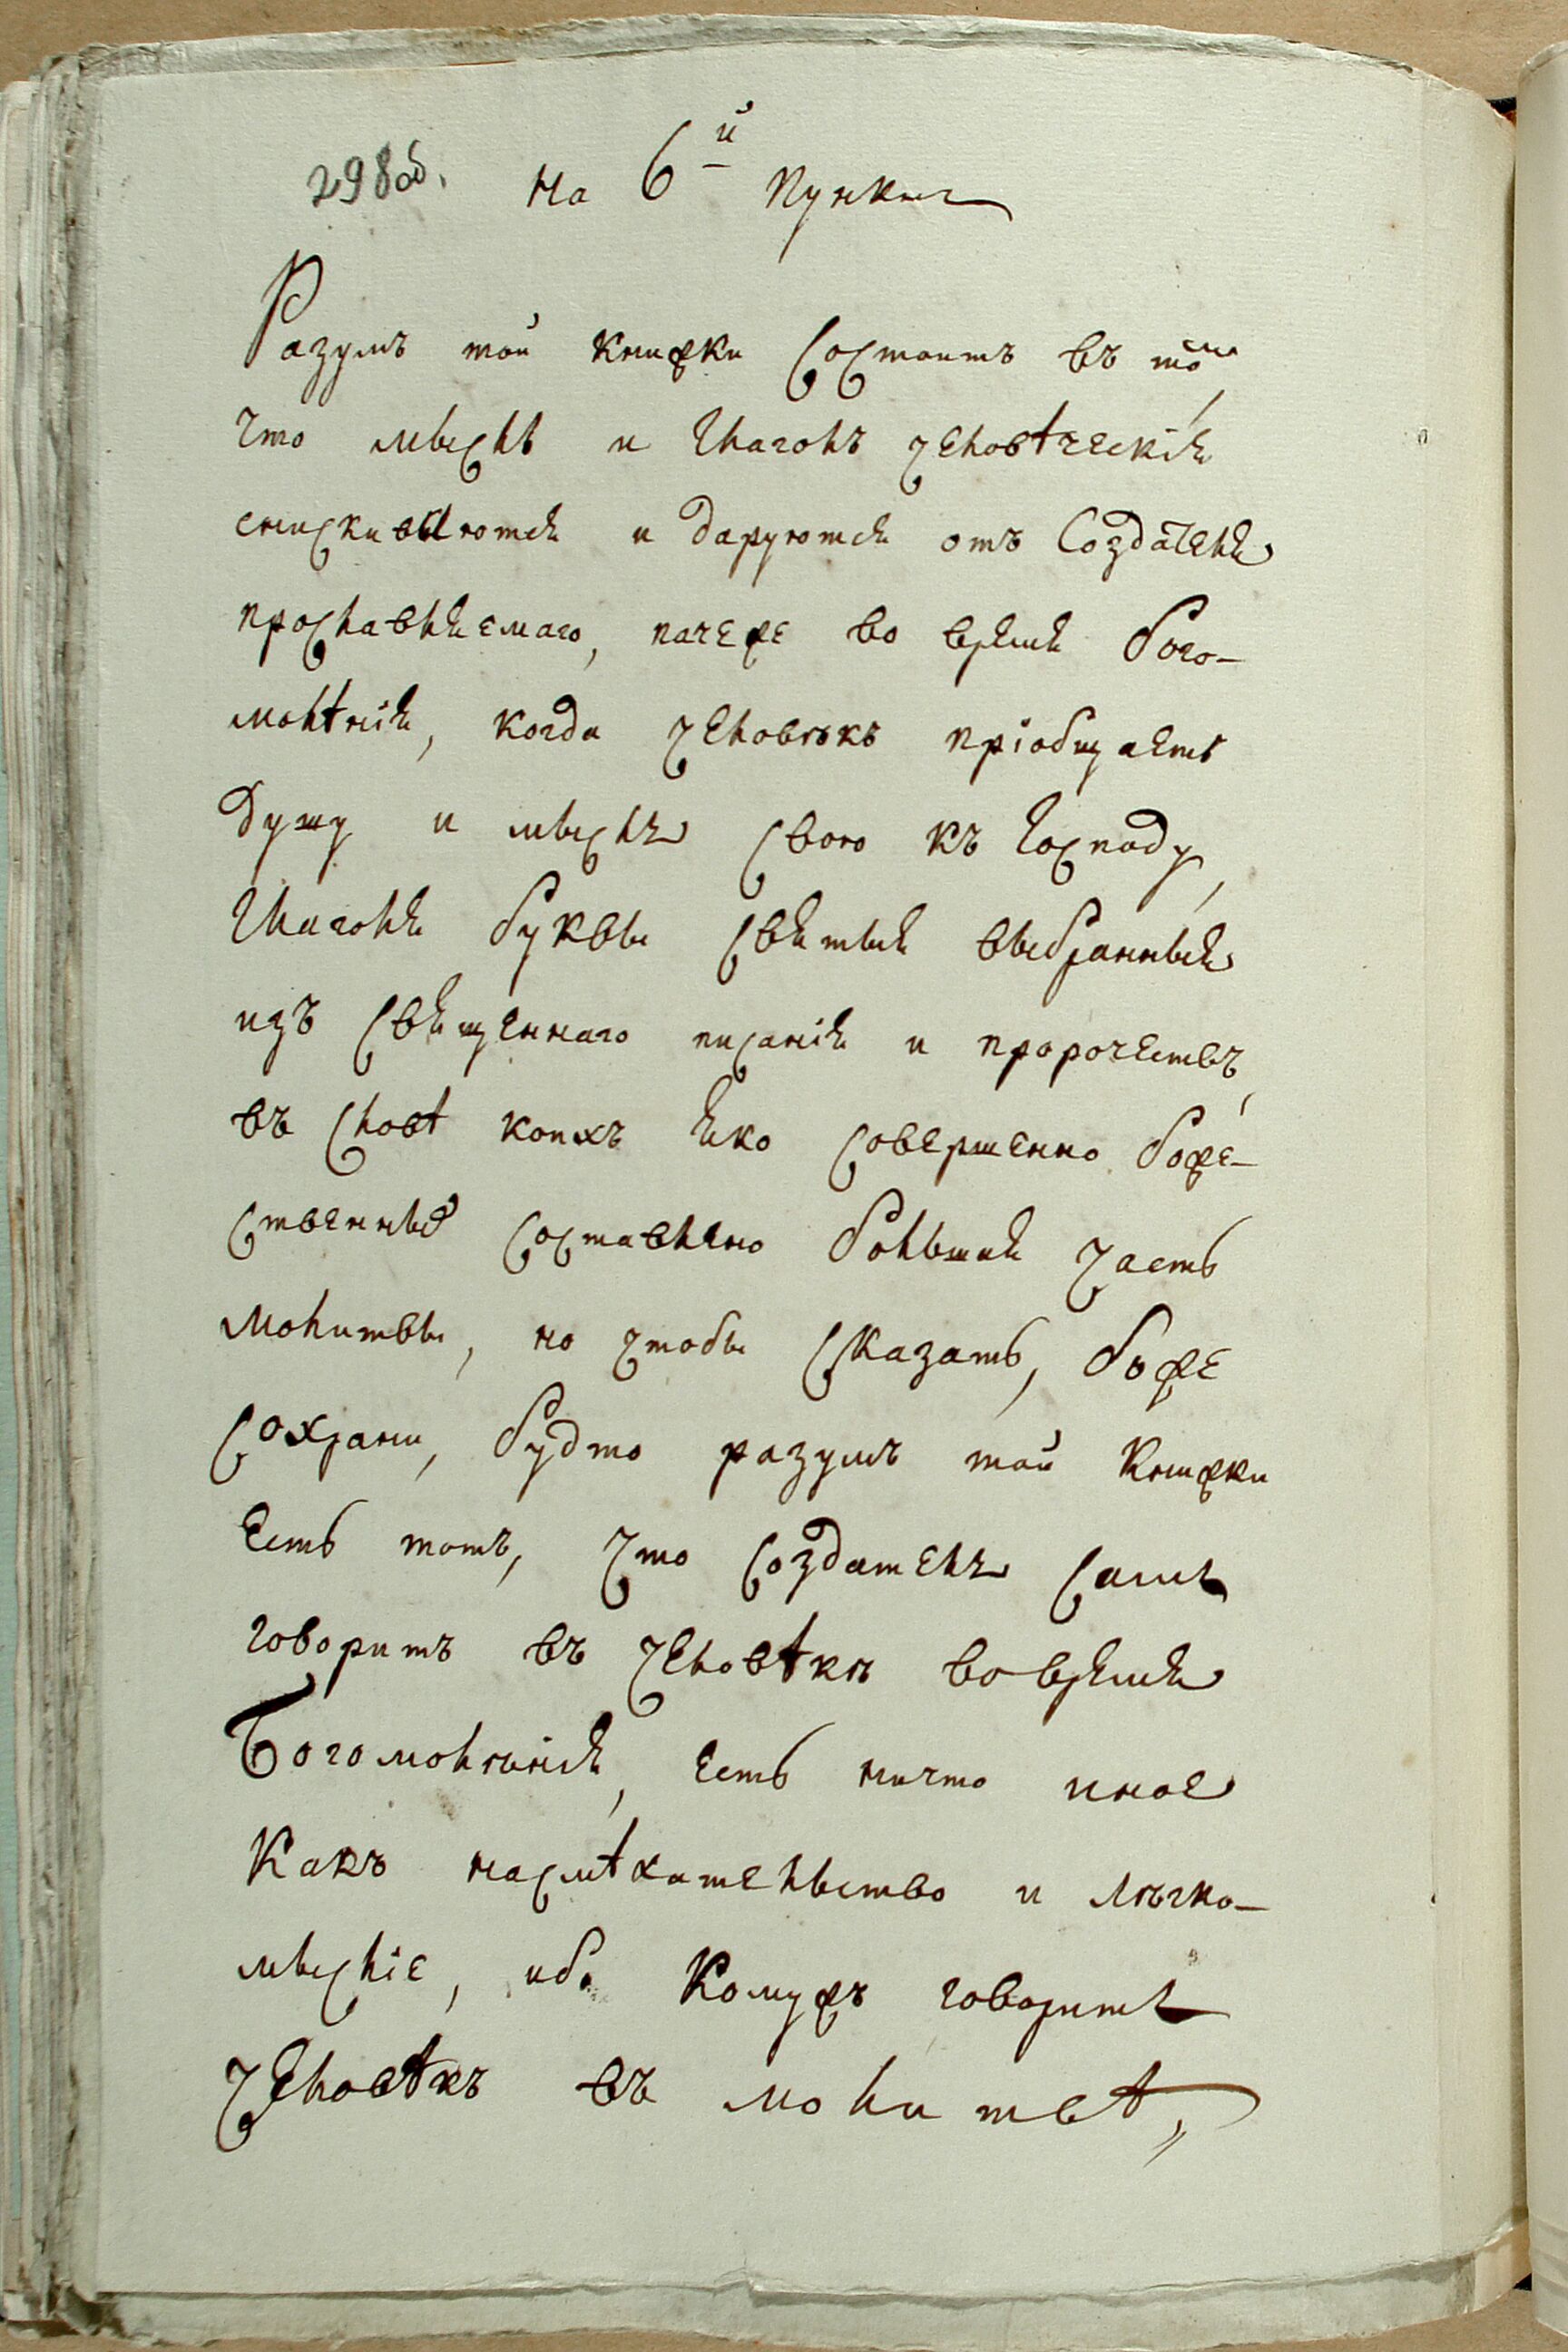 298об. На 6й пунктъ
Разумъ той книжки состоитъ въ томъ,
что мысль и глаголъ человѣческія
снискиваются и даруются отъ Создателя
прославляемаго, паче же во время бого-
молѣнія, когда человѣкъ пріобщаетъ
душу и мысль свою къ Господу,
глаголя буквы святыя выбранныя
изъ священнаго писанія и пророчествъ,
въ словѣ коихъ яко совершенно боже-
ственныхъ составлено большая часть
молитвы, но чтобы сказать, боже
сохрани, будто разумъ той книжки
есть тотъ, что создатель самъ
говоритъ въ человѣкѣ во время
Богомолѣнія, есть ничто иное
какъ насмѣхательство и лѣгко-
мысліе, ибо комужъ говоритъ
человѣкъ въ молитвѣ,